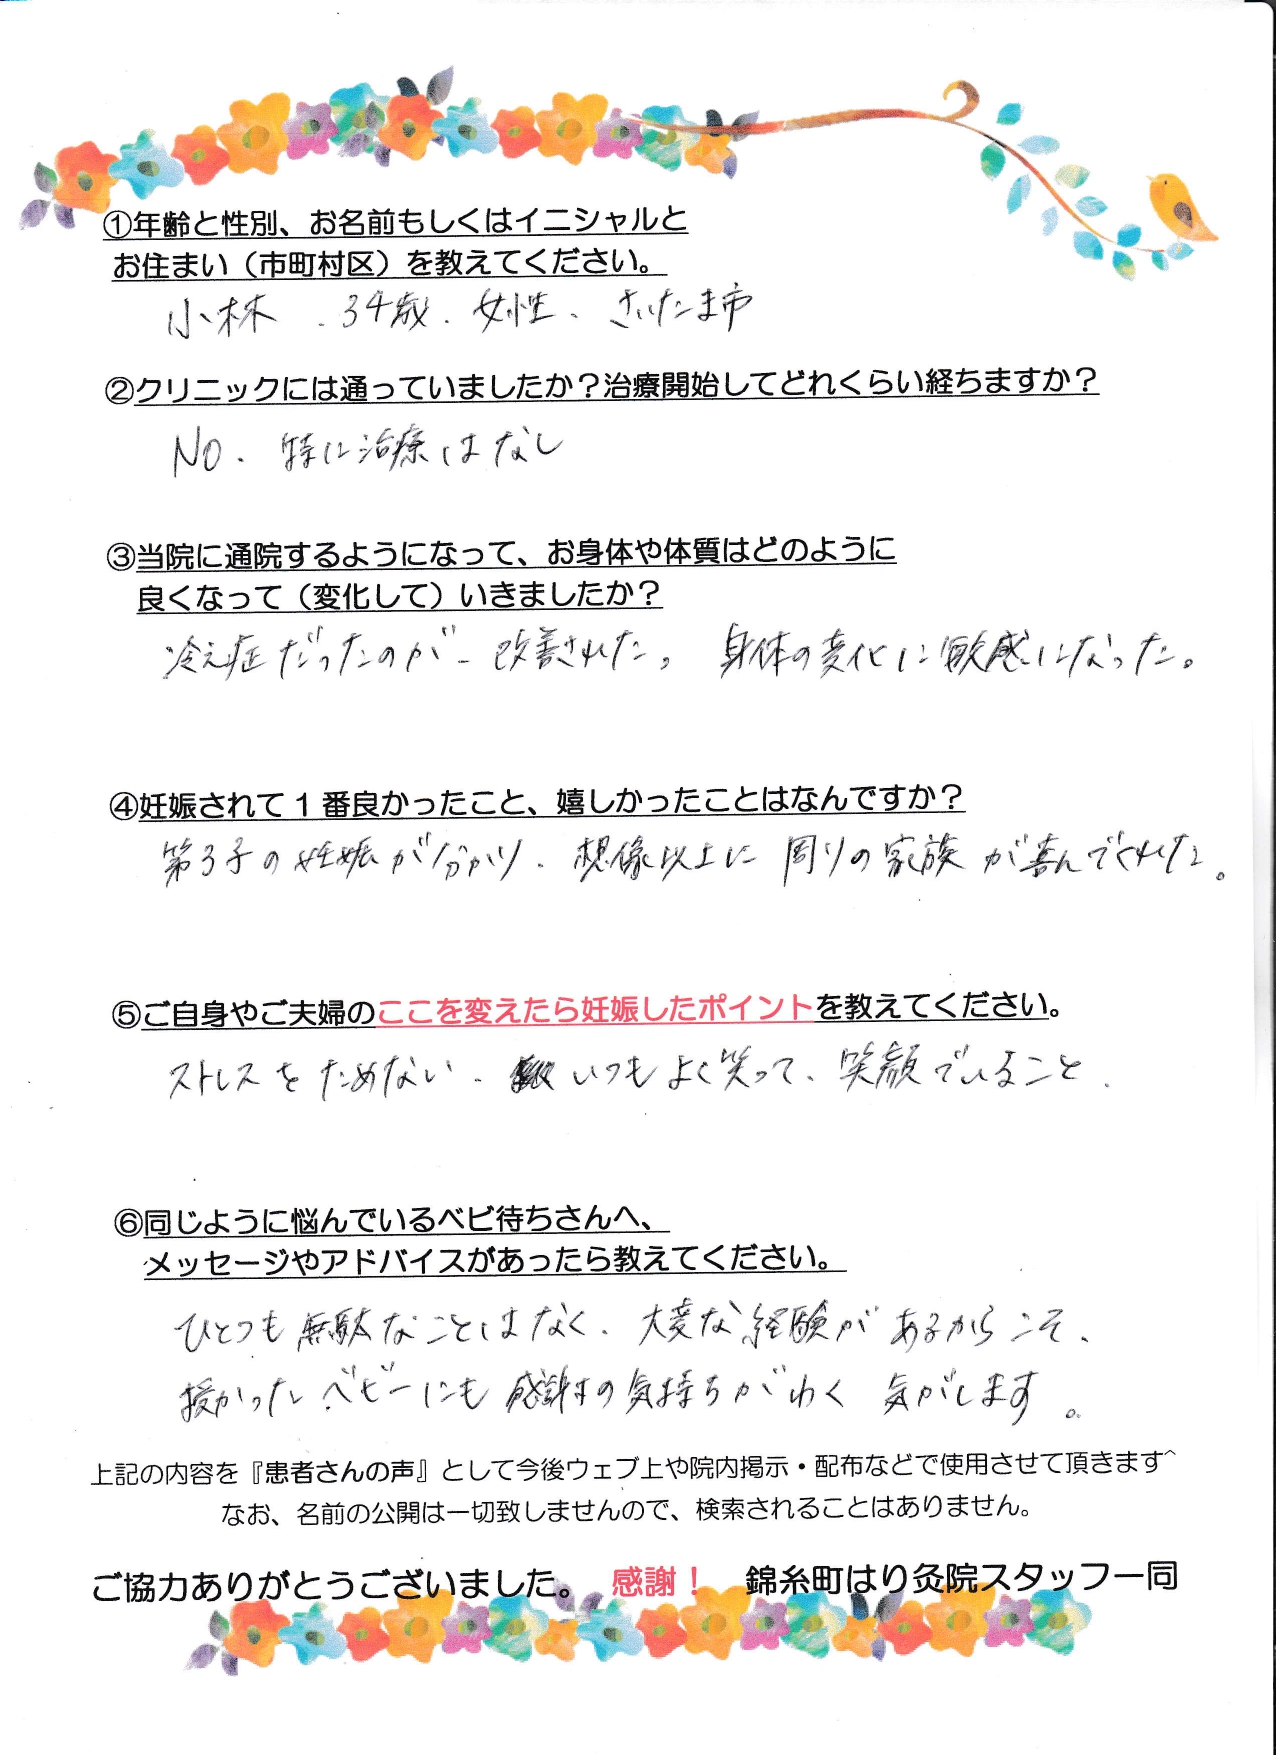 ①年齢と性別、お名前もしくはイニシャルと
お住まい（市町村区）を教えてください。
小林 . 34歳. 女性 、 さいたま市
②クリニックには通っていましたか？治療開始してどれくらい経ちますか？
NO. 特に治療はなし
③当院に通院するようになって、お身体や体質はどのように
良くなって（変化して）いきましたか？
冷え症だったのが、改善された。 身体の変化に敏感になった。
④妊娠されて1番良かったこと、嬉しかったことはなんですか？
第3子の妊娠が分かり、想像以上に周りの家族が喜んでくれた。
⑤ご自身やご夫婦のここを変えたら妊娠したポイントを教えてください。
ストレスをためない、いつもよく笑って、笑顔でいること.
⑥同じように悩んでいるベビ待ちさんへ、
メッセージやアドバイスがあったら教えてください。
ひとつも無駄なことはなく、大変な経験があるからこそ、
授かったベビーにも感謝の気持ちがわく気がします。
上記の内容を『患者さんの声』として今後ウェブ上や院内掲示・配布などで使用させて頂きます^
なお、名前の公開は一切致しませんので、検索されることはありません。
ご協力ありがとうございました。 感謝！ 錦糸町はり灸院スタッフ一同